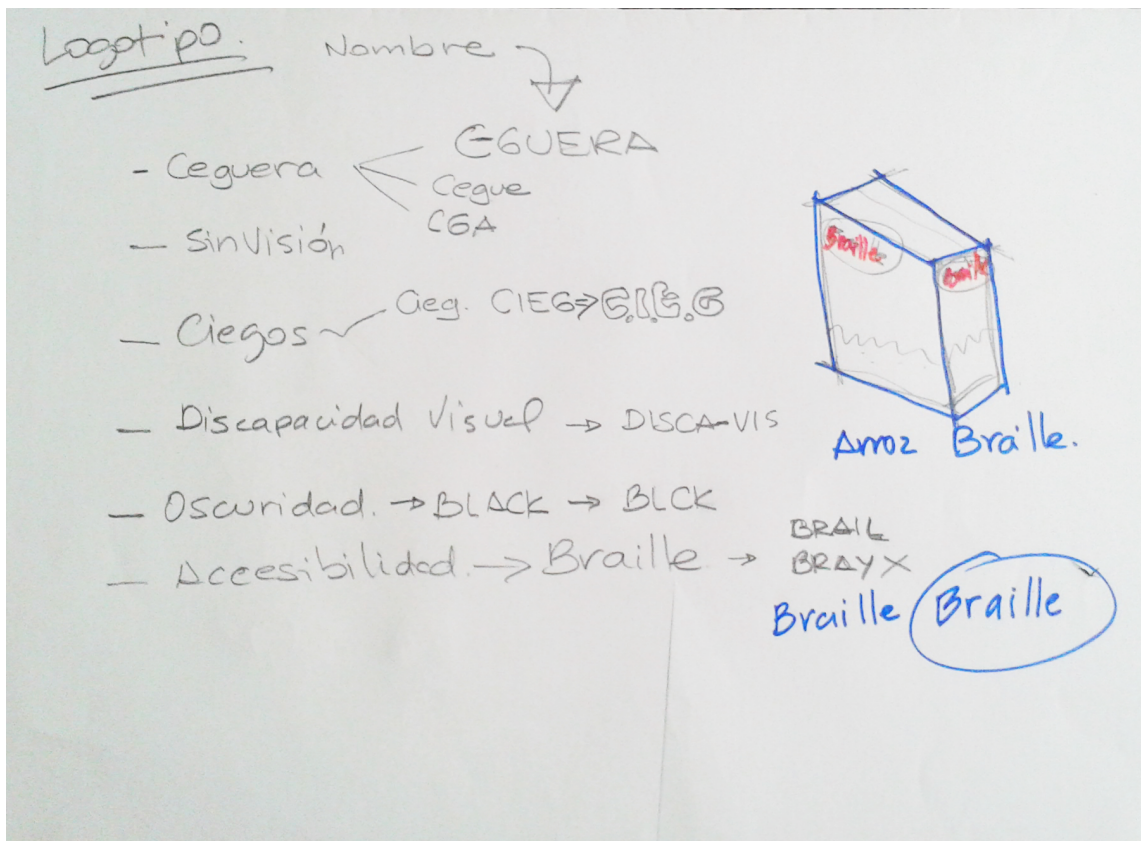 Logotipo. Nombre
- Ceguera CEGUERA
Cegue
CGA
- SinVisión
- Ciegos Cieg. CIEG → C.I.E.G
- Discapacidad Visual → DISCA-VIS
- Oscuridad. → BLACK → BLCK
- Accesibilidad. → Braille → BRAIL
BRAYX
Braille Braille
Braille Braille
Arroz Braille.